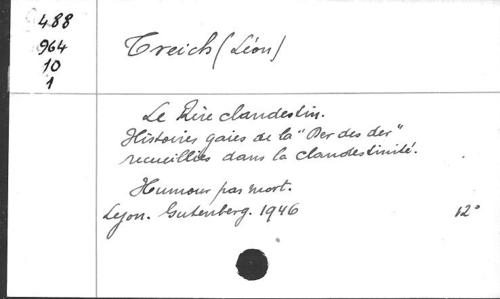 488
964
10
1
Treich (Léon)
Le Rire clandestin.
Histoires gaies de la "Der des der"
recueillies dans la clandestinité.
Humour pas mort.
Lyon. Gutenberg. 1946 12°